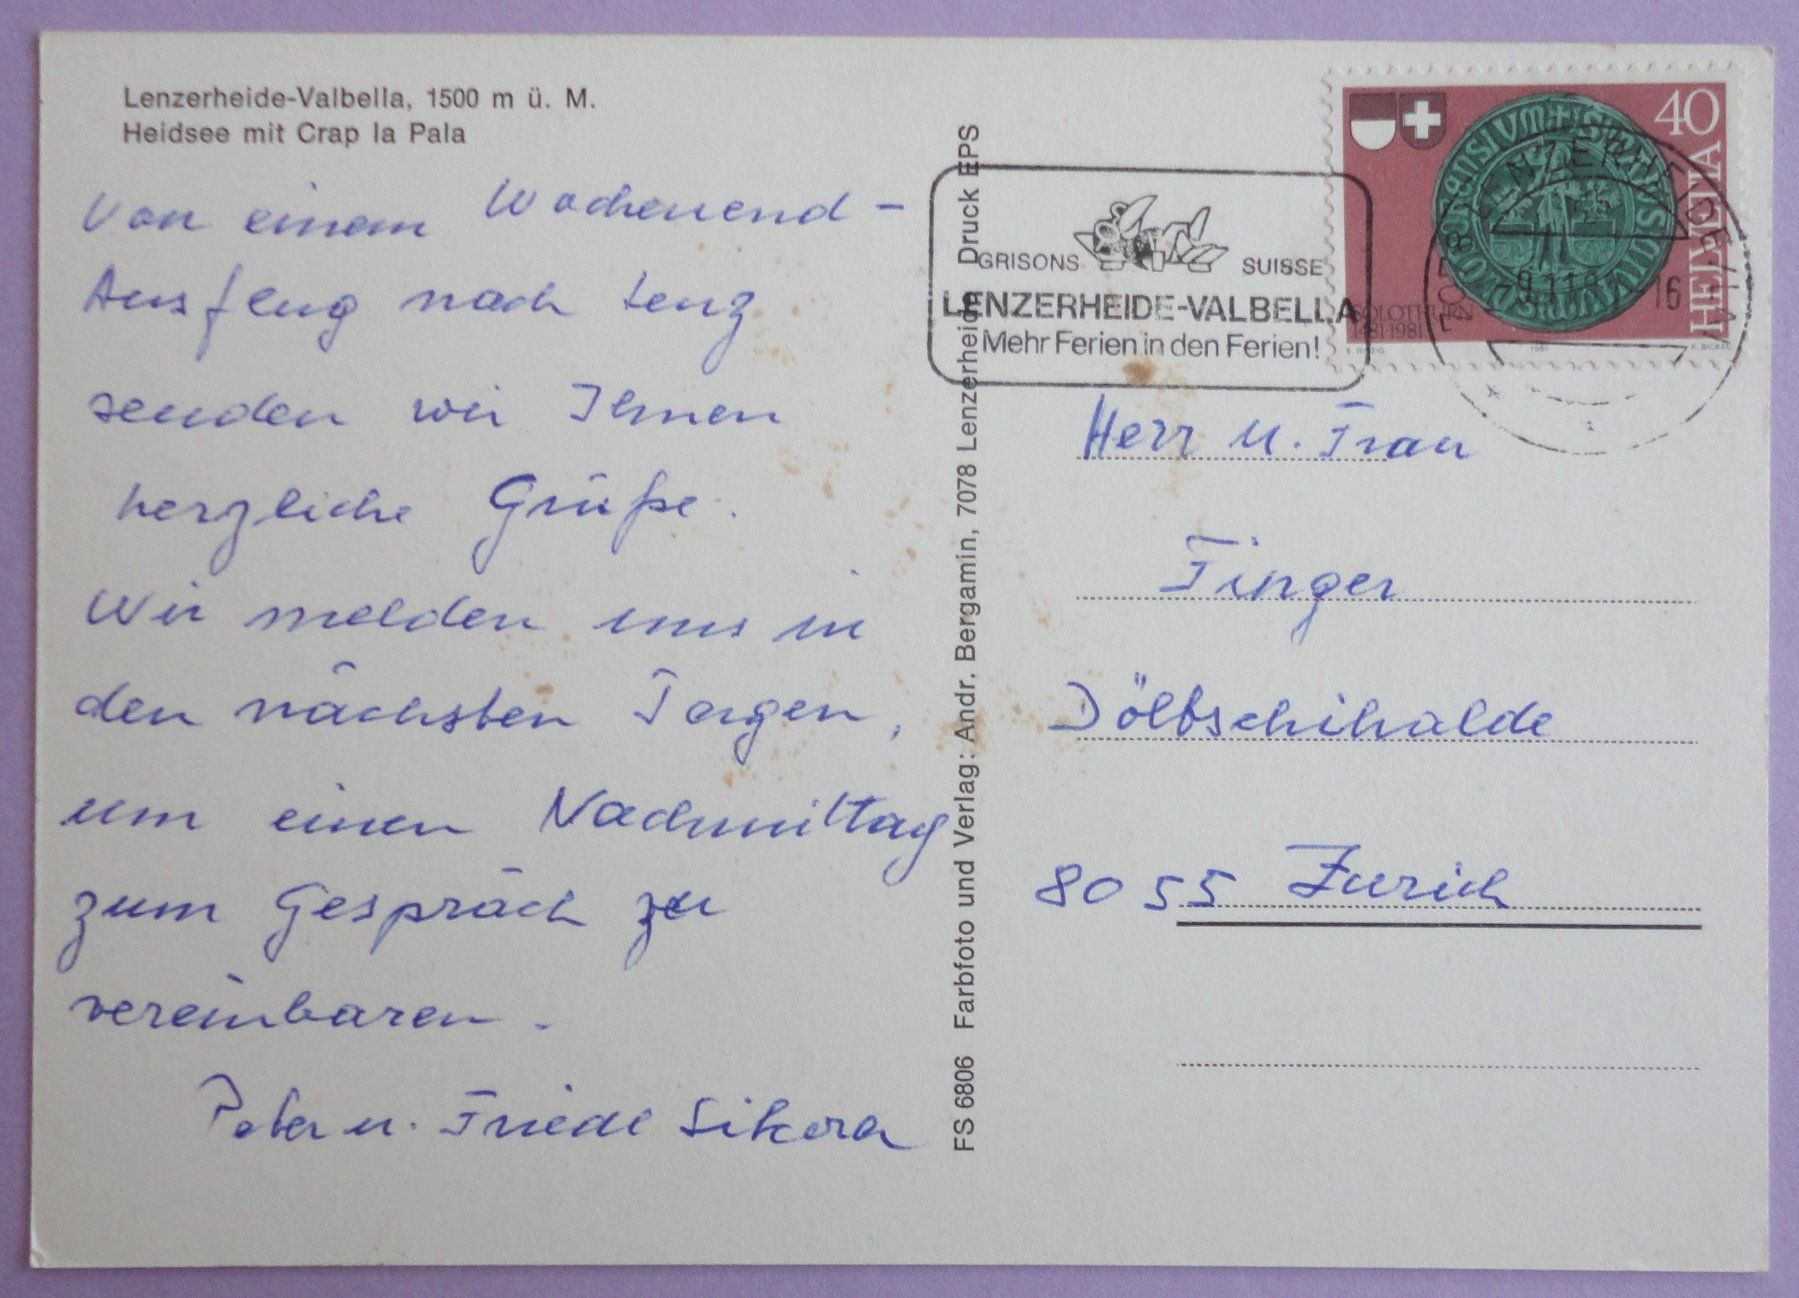 Lenzerheide-Valbella, 1500 m ü. M.
Heidsee mit Crap la Pala
Von einem Wochenend-
Ausflug nach Lenz
senden wir Ihnen
herzliche Grüße.
Wir melden uns in
den nächsten Tagen,
um einen Nachmittag
zum Gespräch zu
vereinbaren.
Peter u. Friedl Sikora
FS 6806 Farbfoto und Verlag: Andr. Bergamin, 7078 Lenzerheide Druck EPS
GRISONS SUISSE
LENZERHEIDE-VALBELLA
Mehr Ferien in den Ferien!
40
HELVETIA
SOLOTHURN
1481-1981
1981
Herr u. Frau
Finger
Döltschihalde
8055 Zürich